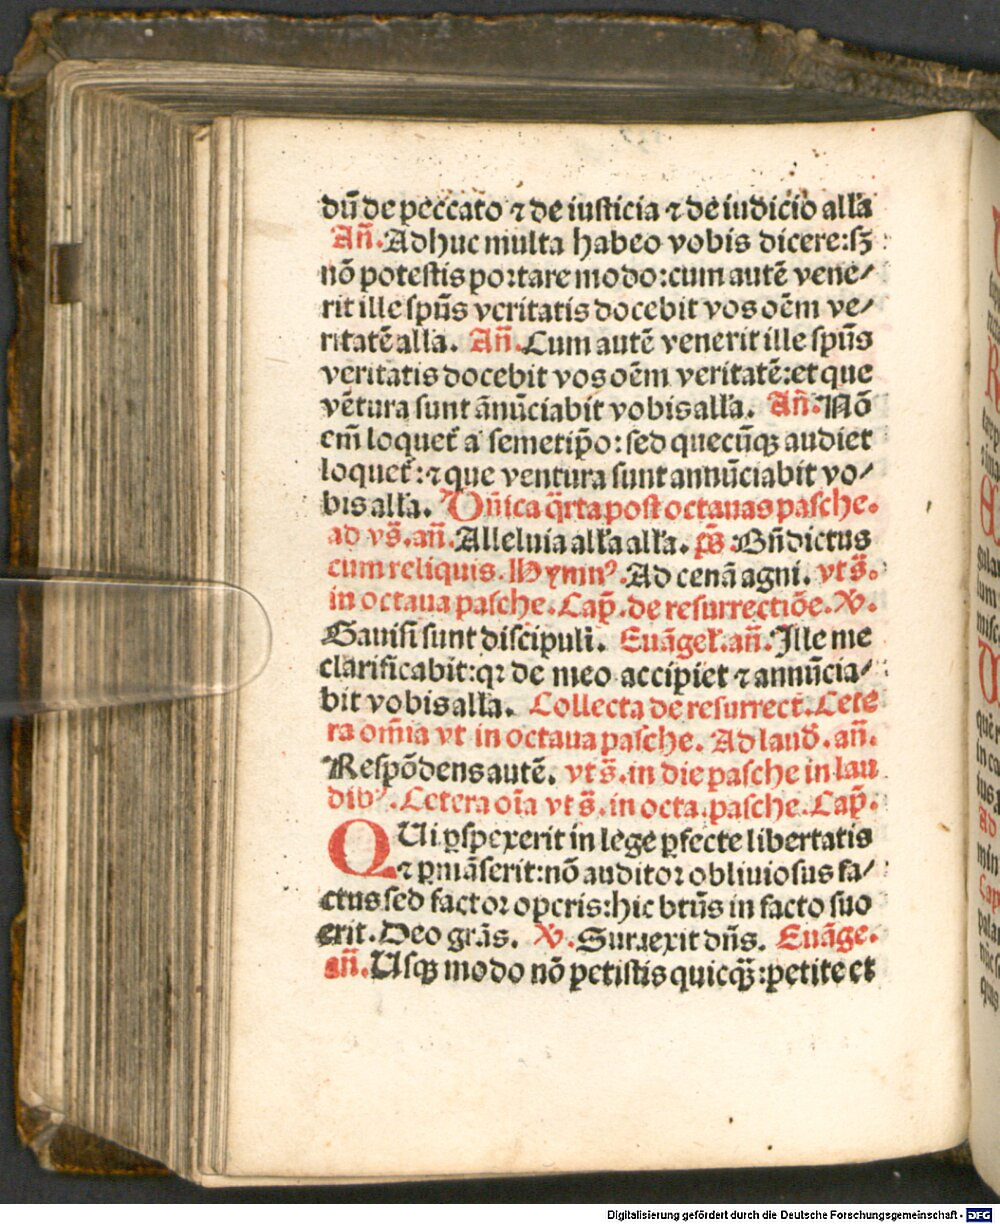 dū de peccato ⁊ de iusticia ⁊ de iudicio alła
An̄. Adhuc multa habeo vobis dicere: sꝫ
nō potestis portare modo: cum autē vene/
rit ille spūs veritatis docebit vos oēm ve/
ritatē alla. An̄. Cum autē venerit ille spūs
veritatis docebit vos oēm veritatē: et que
vētura sunt ānūciabit vobis alła. An̄. Nō
em̄ loquet᷑ a semetip̄o: sed quecūqꝫ audiet
loquet᷑: ⁊ que ventura sunt annūciabit vo/
bis alła. Dn̄ica q̈rta post octauas pasche.
ad vs̄. an̄. Alleluia alła alła. ps̄ . Bn̄dictus
cum reliquis. Hymnꝰ. Ad cenā agni. vt s̄.
in octaua pasche. Cap̄. de resurrectiōe. V̸.
Gauisi sunt discipuli. Euāgel̄. an̄. Ille me
clarificabit: qꝛ de meo accipiet ⁊ annūcia/
bit vobis alła. Collecta de resurrect. Cete
ra om̄ia vt in octaua pasche. Ad laud̄. an̄.
Respōdens autē. vt s̄. in die pasche in lau
dibꝰ. Cetera oīa vt s̄. in octa. pasche. Cap̄.
QUi ꝑspexerit in lege ꝑfecte libertatis
⁊ ꝑmāserit: nō auditor obliuiosus fa/
ctus sed factor operis: hic btūs in facto suo
erit. Deo gr̄as. V̸. Surrexit dn̄s. Euāge.
an̄. Usqꝫ modo nō petistis quicq̈ꝫ: petite et
Digitalisierung gefördert durch die Deutsche Forschungsgemeinschaft - DFG